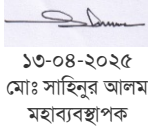 ১৩-০৪-২০২৫
মোঃ সাহিনুর আলম
মহাব্যবস্থাপক